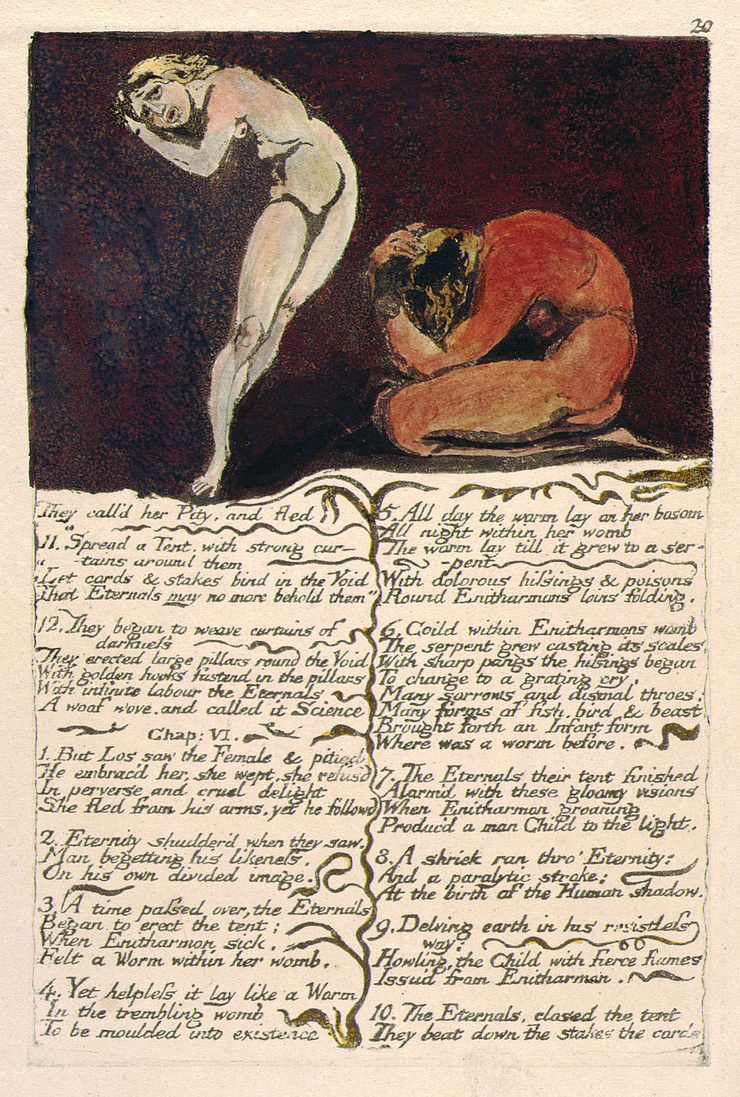 20
They call'd her Pity, and fled
11. "Spread a Tent, with strong cur-
" -tains around them
"Let cords & stakes bind in the Void
That Eternals may no more behold them"
12. They began to weave curtains of
darkness
They erected large pillars round the Void
With golden hooks fastend in the pillars
With infinite labour the Eternals
A woof wove, and called it Science
Chap: VI.
1. But Los saw the Female & pitied
He embrac'd her, she wept, she refus'd
In perverse and cruel delight
She fled from his arms, yet he followd
2. Eternity shudder'd when they saw,
Man begetting his likeness,
On his own divided image.
3. A time passed over, the Eternals
Began to erect the tent;
When Enitharmon sick,
Felt a Worm within her womb.
4. Yet helpless it lay like a Worm
In the trembling womb
To be moulded into existence
5. All day the worm lay on her bosom
All night within her womb
The worm lay till it grew to a ser-
-pent
With dolorous hissings & poisons
Round Enitharmons loins folding,
6. Coild within Enitharmons womb
The serpent grew casting its scales,
With sharp pangs the hissings began
To change to a grating cry,
Many sorrows and dismal throes,
Many forms of fish, bird & beast
Brought forth an Infant form
Where was a worm before.
7. The Eternals their tent finished
Alarm'd with these gloomy visions
When Enitharmon groaning
Produc'd a man Child to the light.
8. A shriek ran thro' Eternity:
And a paralytic stroke;
At the birth of the Human shadow.
9. Delving earth in his resistless
way;
Howling, the Child with fierce flames
Issu'd from Enitharmon.
10. The Eternals, closed the tent
They beat down the stakes the cords